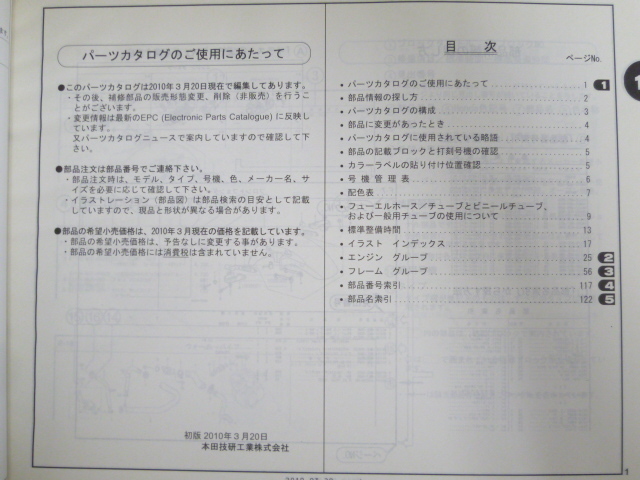 パーツカタログのご使用にあたって
●このパーツカタログは2010年3月20日現在で編集してあります。
・その後、補修部品の販売形態変更、削除（非販売）を行うこ
とがございます。
・変更情報は最新のEPC (Electronic Parts Catalogue) に反映し
ています。
又パーツカタログニュースで案内していますので確認して下
さい。
●部品注文は部品番号でご連絡下さい。
・部品注文時は、モデル、タイプ、号機、色、メーカー名、サ
イズを必要に応じて確認して下さい。
・イラストレーション（部品図）は部品検索の目安として記載
していますので、現品と形状が異なる場合があります。
●部品の希望小売価格は、2010年3月現在の価格を記載しています。
・部品の希望小売価格は、予告なしに変更する事があります。
・部品の希望小売価格には消費税は含まれていません。
初版 2010年3月20日
本田技研工業株式会社
目 次
ページNo.
• パーツカタログのご使用にあたって 1 1
• 部品情報の探し方 2
• パーツカタログの構成 3
• 部品に変更があったとき 4
• パーツカタログに使用されている略語 4
• 部品の記載ブロックと打刻号機の確認 5
• カラーラベルの貼り付け位置確認 5
• 号機管理表 6
• 配色表 7
• フューエルホース／チューブとビニールチューブ、
および一般用チューブの使用について 9
• 標準整備時間 13
• イラスト インデックス 17
• エンジン グループ 25 2
• フレーム グループ 56 3
• 部品番号索引 117 4
• 部品名索引 122 5
1
1